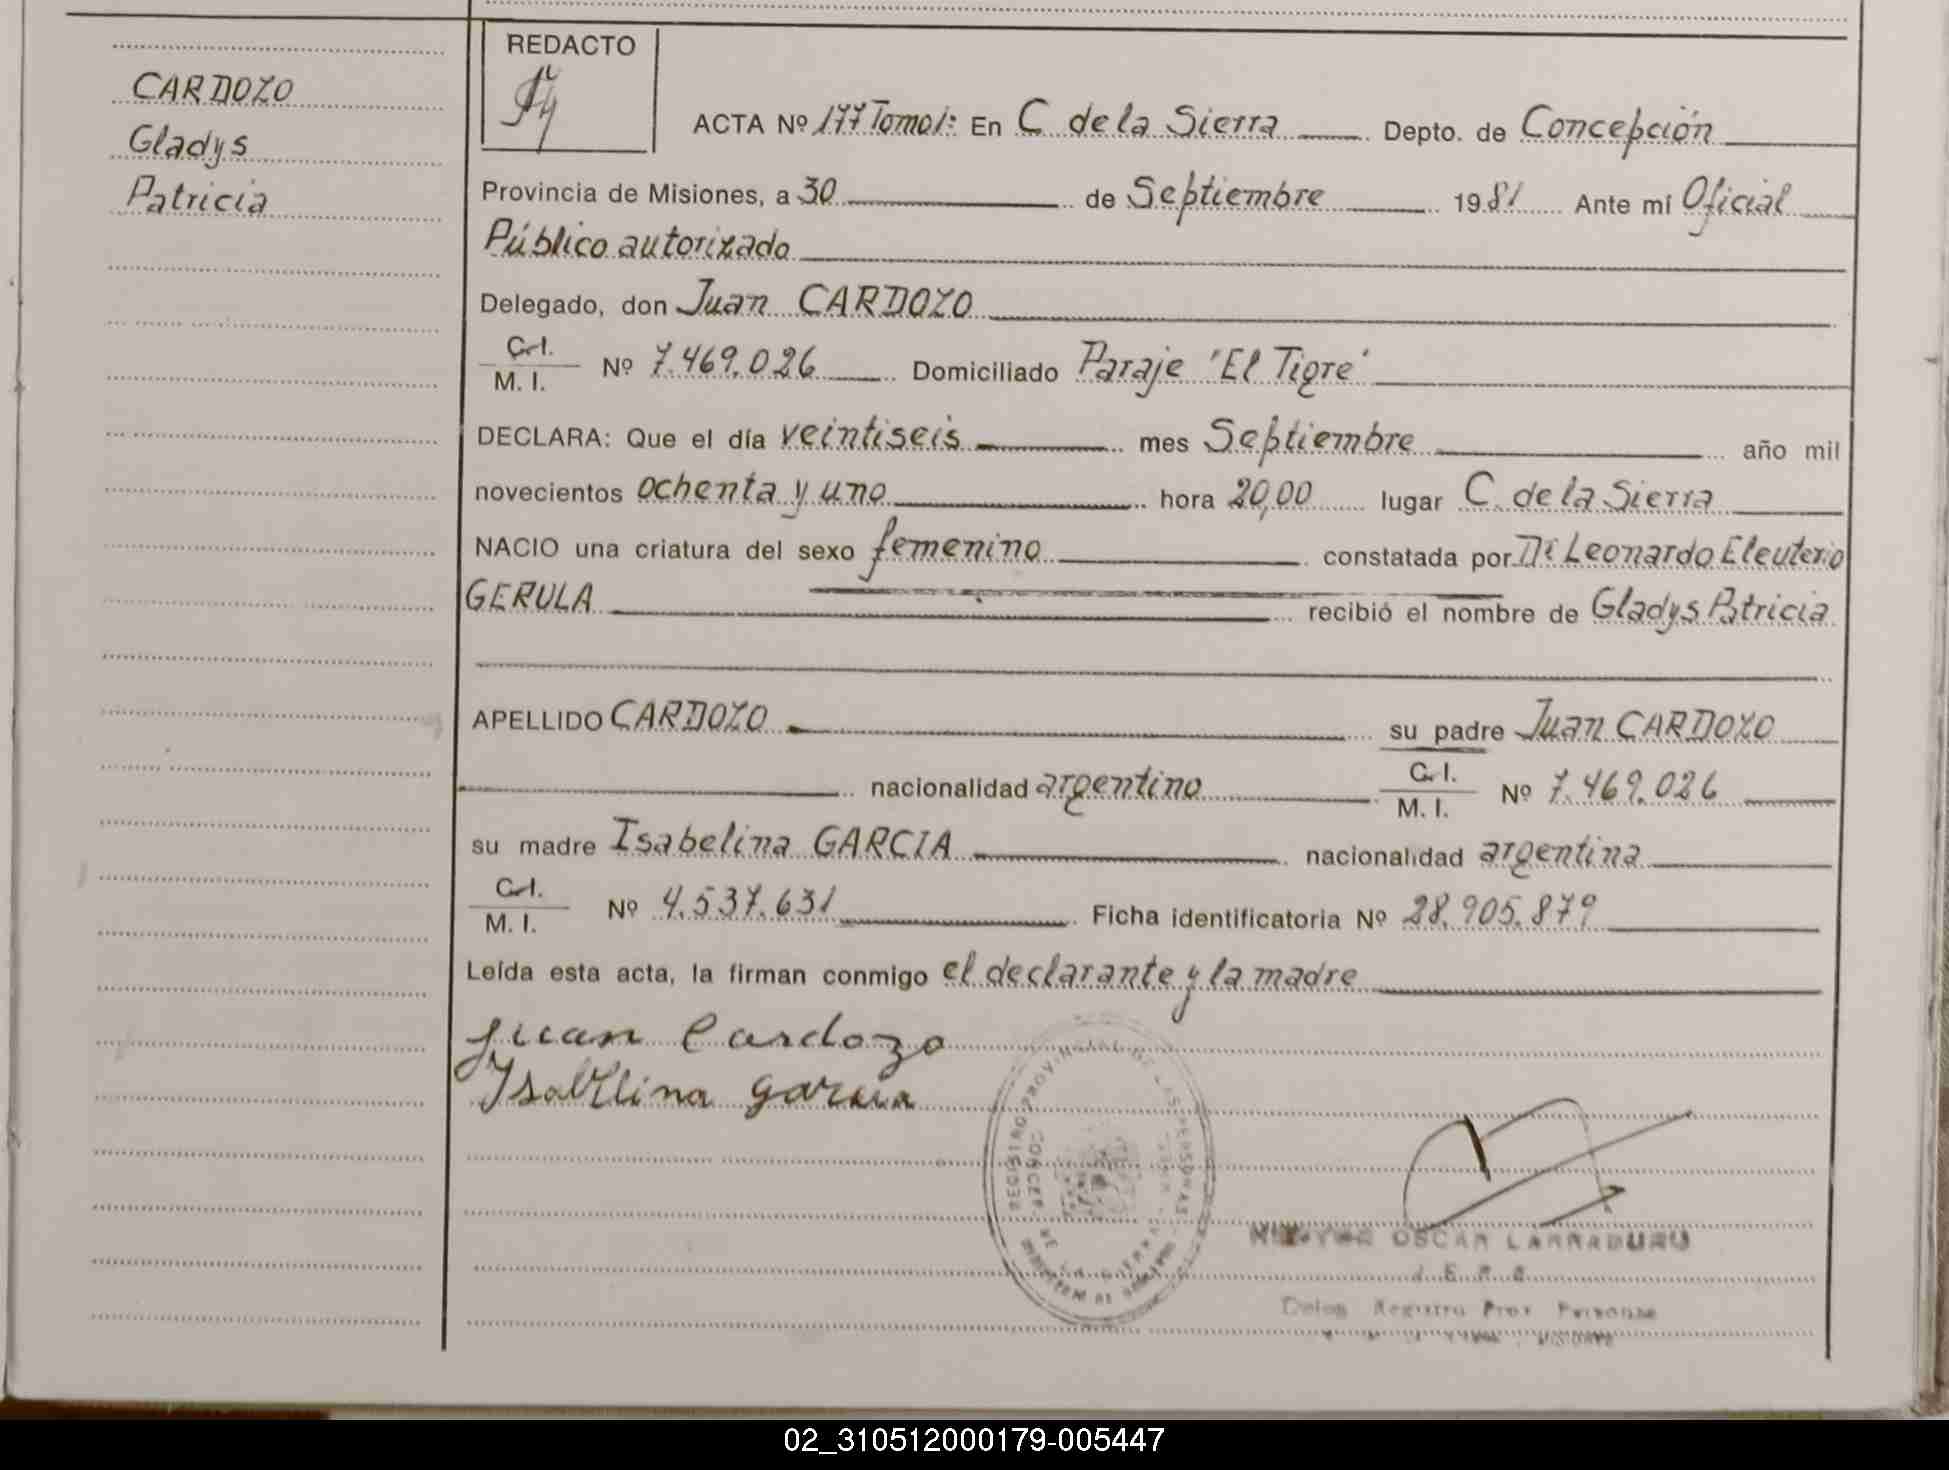 CARDOZO
Gladys
Patricia
REDACTO
ACTA Nº 177 Tomo 1: En C. de la Sierra Depto. de Concepción
Provincia de Misiones, a 30 de Septiembre 1981 Ante mí Oficial
Público autorizado
Delegado, don Juan CARDOZO
C.I.
M. I. Nº 7.469.026 Domiciliado Paraje 'El Tigre'
DECLARA: Que el día veintiseis mes Septiembre año mil
novecientos ochenta y uno hora 20,00 lugar C. de la Sierra
NACIO una criatura del sexo femenino constatada por Dr Leonardo Eleuterio
GERULA recibió el nombre de Gladys Patricia
APELLIDO CARDOZO su padre Juan CARDOZO
nacionalidad argentino C.I. M. I. Nº 7.469.026
su madre Isabelina GARCIA nacionalidad argentina
C.I.
M. I. Nº 4.537.631 Ficha identificatoria Nº 28.905.879
Leída esta acta, la firman conmigo el declarante y la madre
Juan Cardozo
Isabelina garcia
REGISTRO PROVINCIAL DE LAS PERSONAS
OSCAR LARRABURU
Registro Prov Personas
02_310512000179-005447